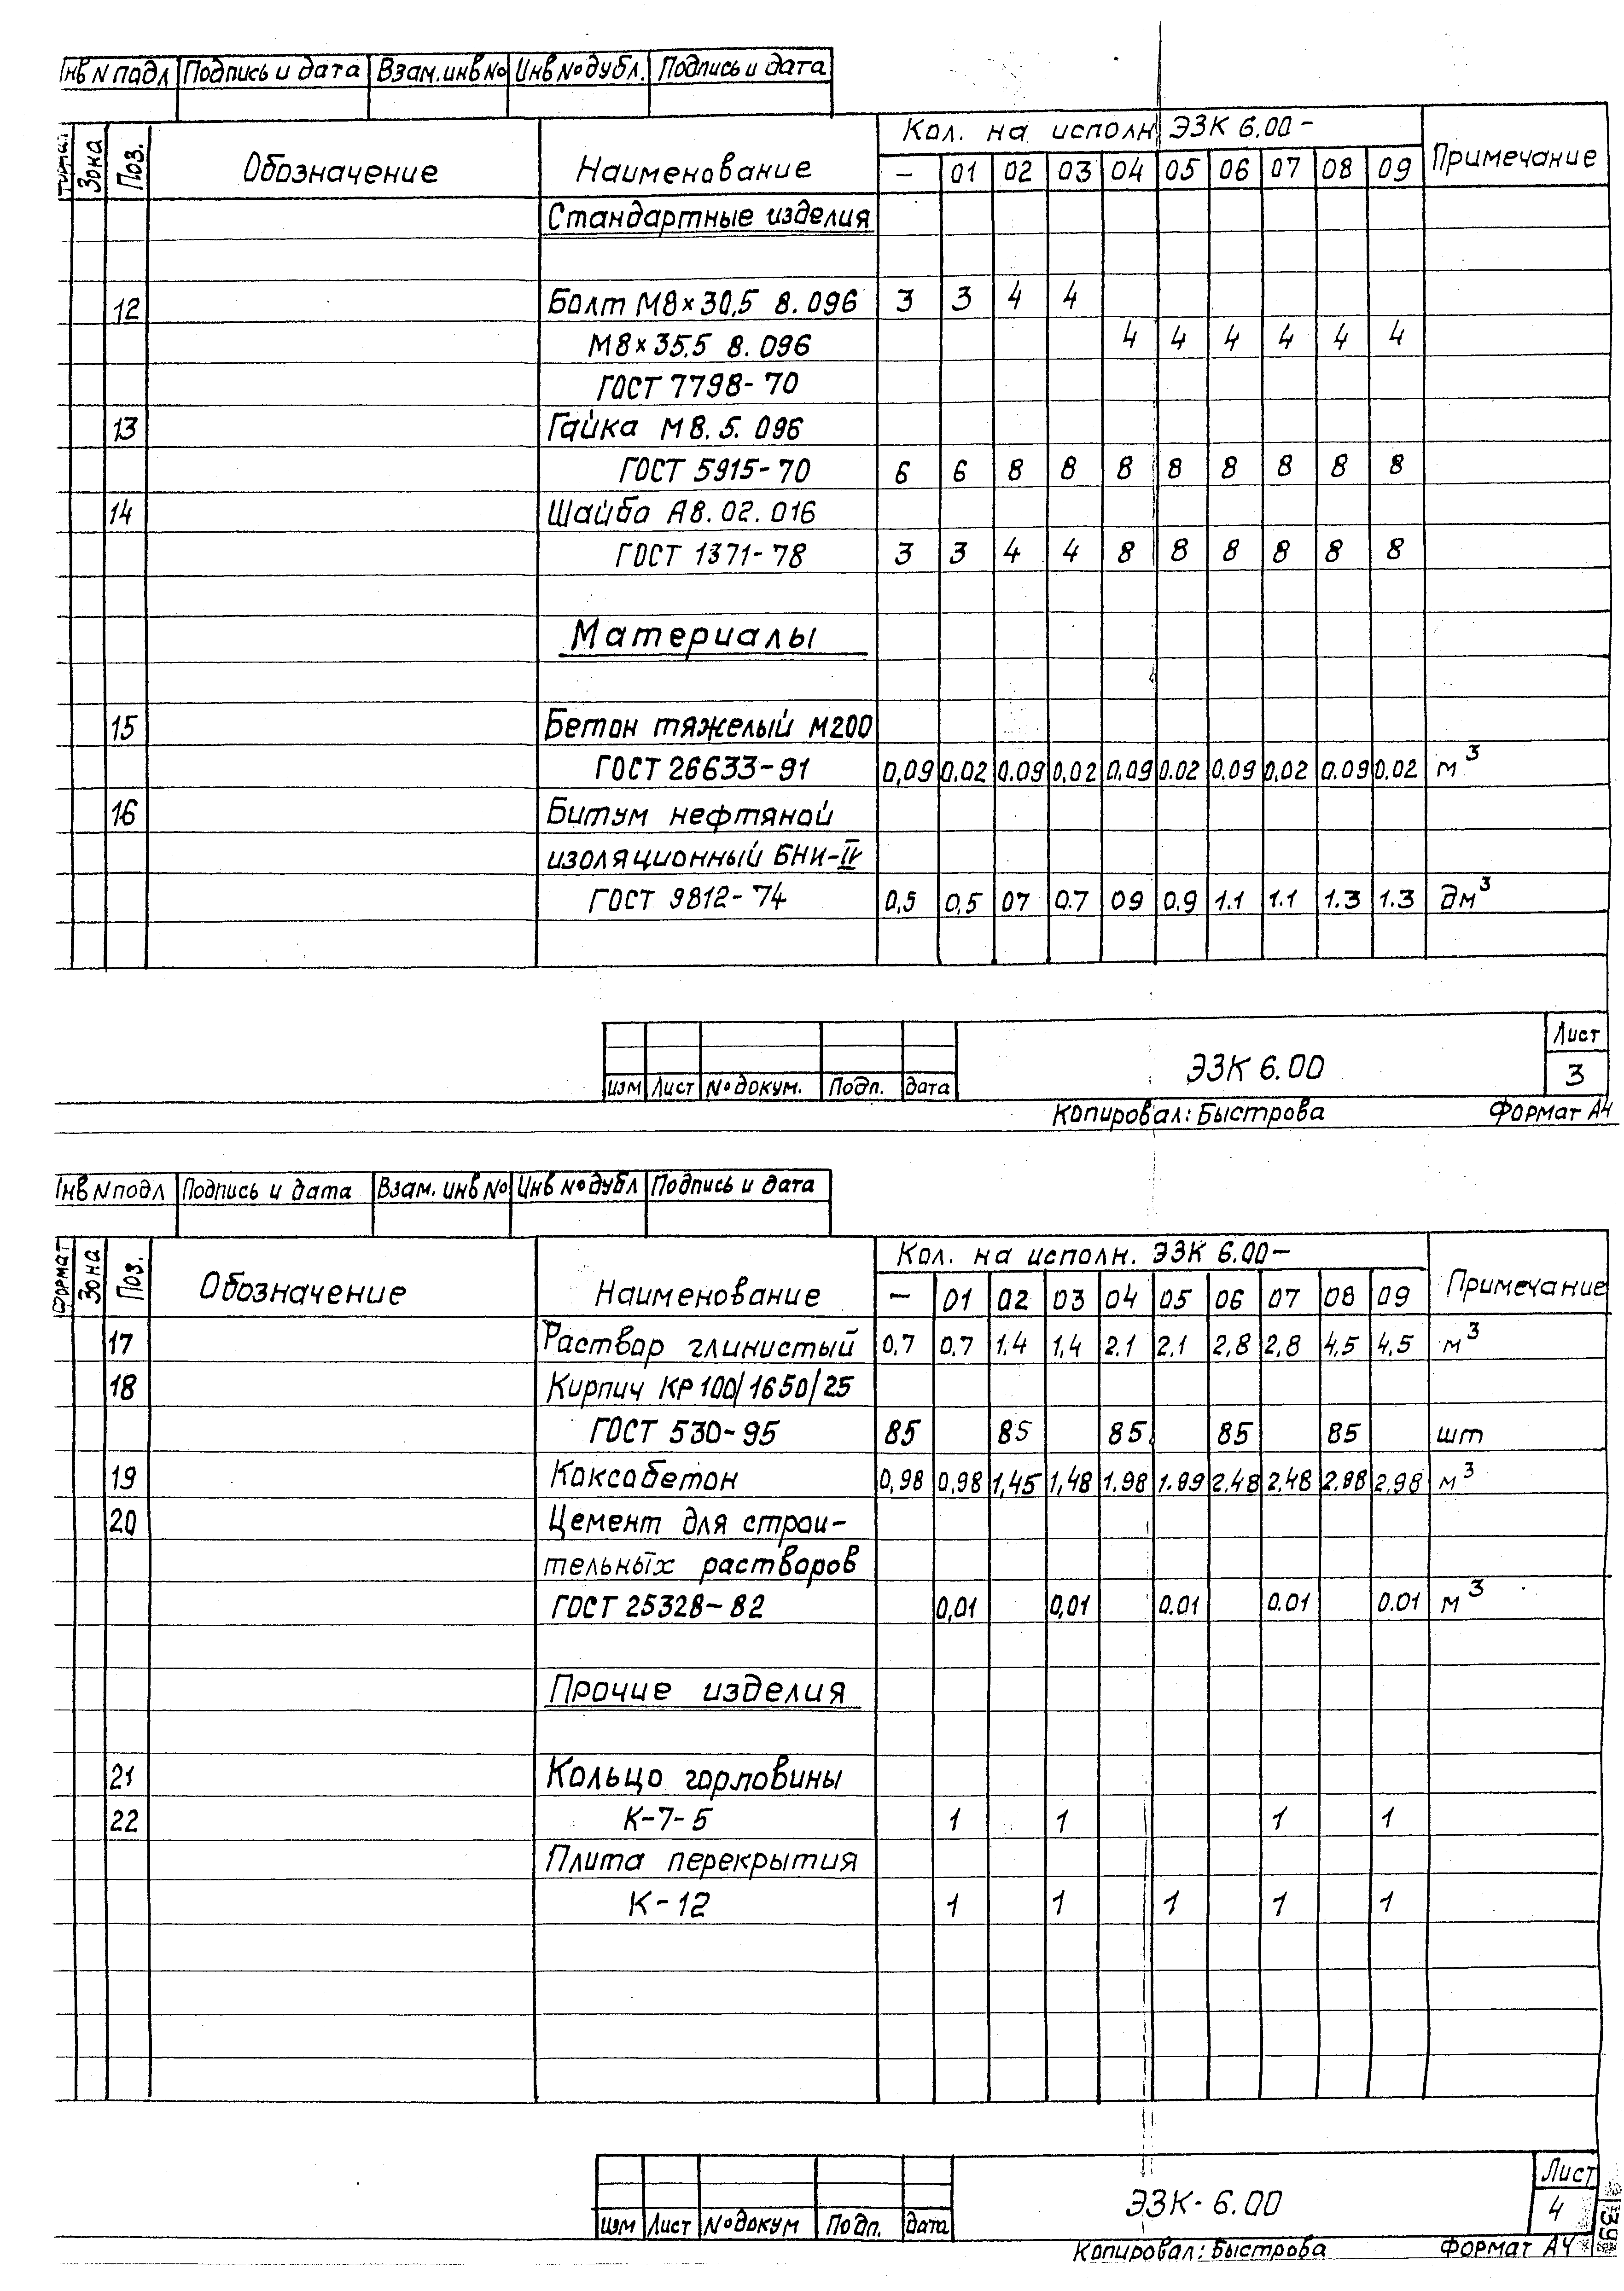 Инв N подл Подпись и дата Взам. инв № Инв № дубл. Подпись и дата
Зона Поз. Обозначение Наименование Кол. на исполн ЭЗК 6.00 – Примечание
– 01 02 03 04 05 06 07 08 09
Стандартные изделия
12 Болт М8×30,5 8.096 3 3 4 4
М8×35.5 8.096 4 4 4 4 4 4
ГОСТ 7798-70
13 Гайка М8.5.096
ГОСТ 5915-70 6 6 8 8 8 8 8 8 8 8
14 Шайба А8.02.016
ГОСТ 1371-78 3 3 4 4 8 8 8 8 8 8
Материалы
15 Бетон тяжелый М200
ГОСТ 26633-91 0,09 0.02 0.09 0.02 0.09 0.02 0.09 0.02 0.09 0.02 м³
16 Битум нефтяной
изоляционный БНИ-IV
ГОСТ 9812-74 0,5 0,5 07 0.7 09 0.9 1.1 1.1 1.3 1.3 дм³
ЭЗК 6.00
Лист
3
изм Лист № докум. Подп. дата
Копировал: Быстрова Формат А4
Инв N подл Подпись и дата Взам. инв № Инв № дубл Подпись и дата
Формат Зона Поз. Обозначение Наименование Кол. на исполн. ЭЗК 6.00– Примечание
– 01 02 03 04 05 06 07 08 09
17 Раствор глинистый 0,7 0,7 1,4 1,4 2.1 2.1 2,8 2,8 4,5 4,5 м³
18 Кирпич КР 100/1650/25
ГОСТ 530-95 85 85 85 85 85 шт
19 Коксобетон 0,98 0,98 1,45 1,48 1.98 1.99 2.48 2.48 2.98 2.98 м³
20 Цемент для строи-
тельных растворов
ГОСТ 25328-82 0,01 0,01 0.01 0.01 0.01 м³
Прочие изделия
21 Кольцо горловины
22 К-7-5 1 1 1 1
Плита перекрытия
К-12 1 1 1 1 1
ЭЗК- 6.00
Лист
4
изм Лист № докум Подп. дата
Копировал: Быстрова Формат А4
39